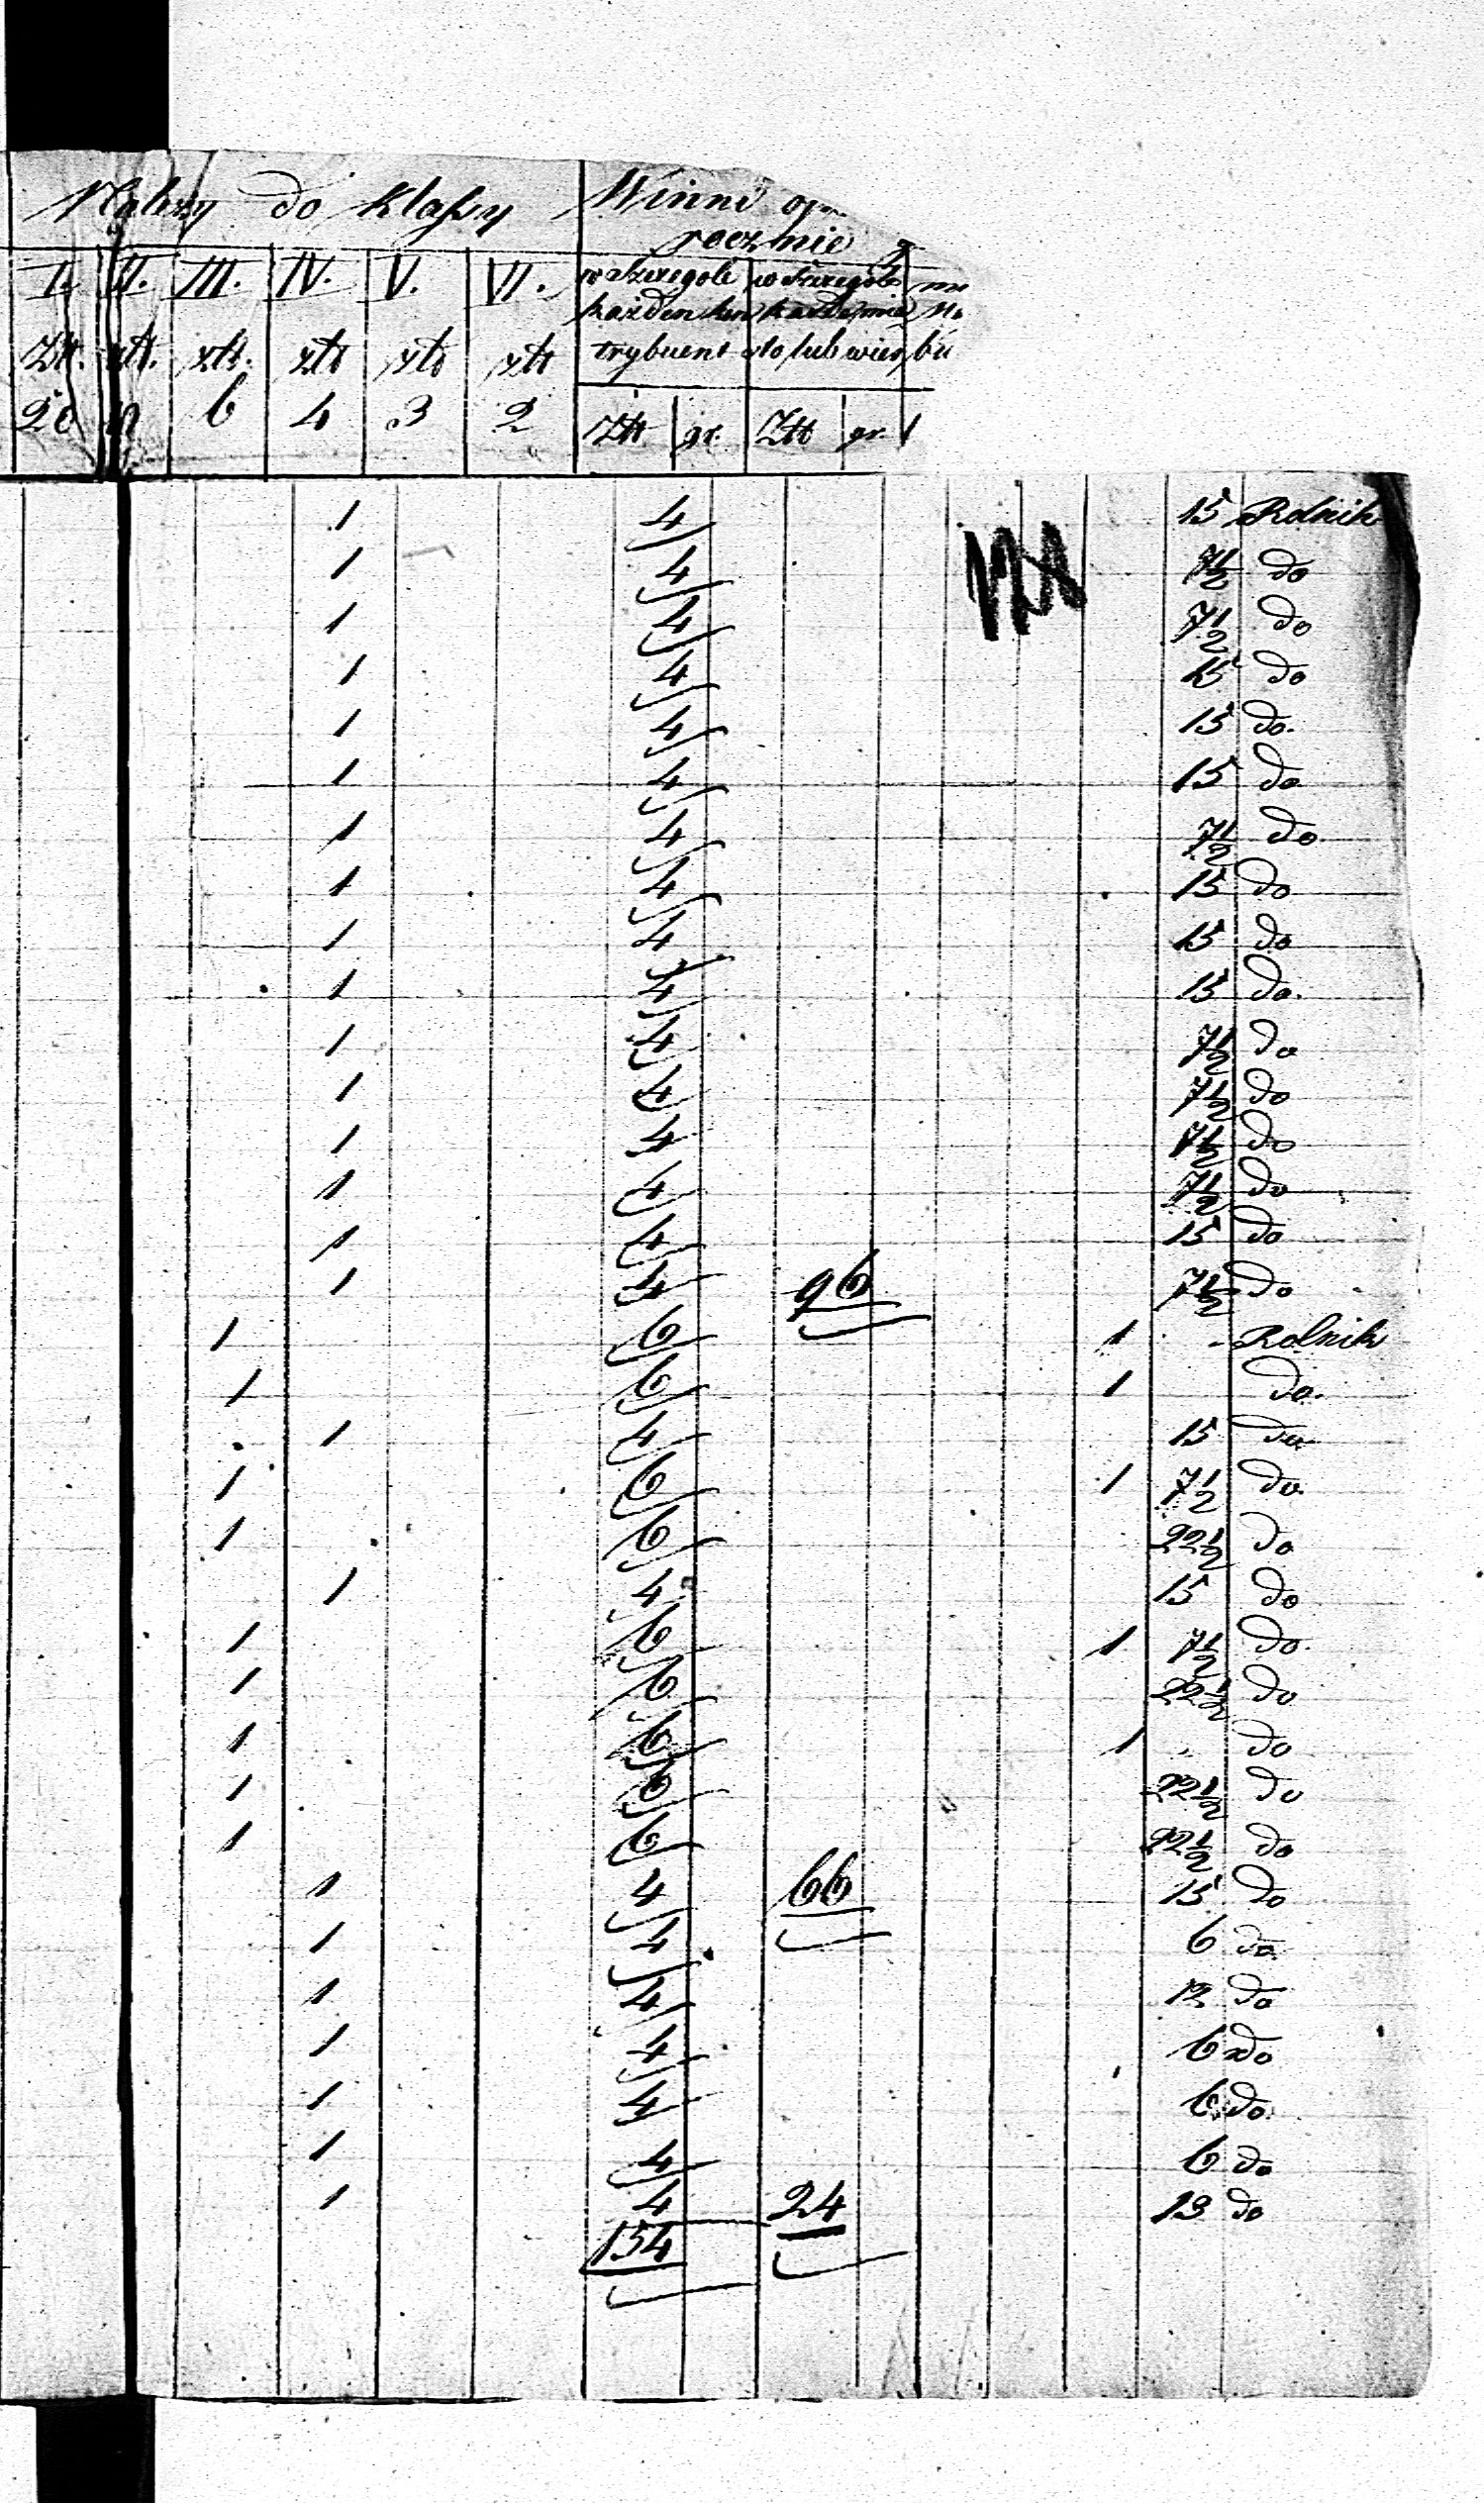 do Klassy Winni
rocznie
I. II. III. IV. V. VI. w szczegole w szczegole
każden kon
Złt. złt. złt. złt złt złt trybuent sto lub wies
20 12 6 4 3 2 Złt gr. Złt gr.
1 4 15 Rolnik
1 4 7½ do
1 4 7½ do
1 4 15 do
1 4 15 do.
1 4 15 do
1 4 7½ do
1 4 15 do
1 4 15 do
1 4 15 do.
1 4 7½ do
1 4 7½ do
1 4 7½ do
1 4 7½ do
1 4 15 do
1 4 96 7½ do
1 6 1 - Rolnik
1 6 1 do.
1 4 15 do
1 6 1 7½ do.
1 6 22½ do
1 4 15 do
1 6 1 7½ do.
1 6 22½ do
1 6 1 " do
1 6 22½ do
1 6 22½ do
1 4 66 15 do
1 4 6 do
1 4 12 do
1 4 6 do
1 4 6 do.
1 4 6 do
1 4 24 13 do
154